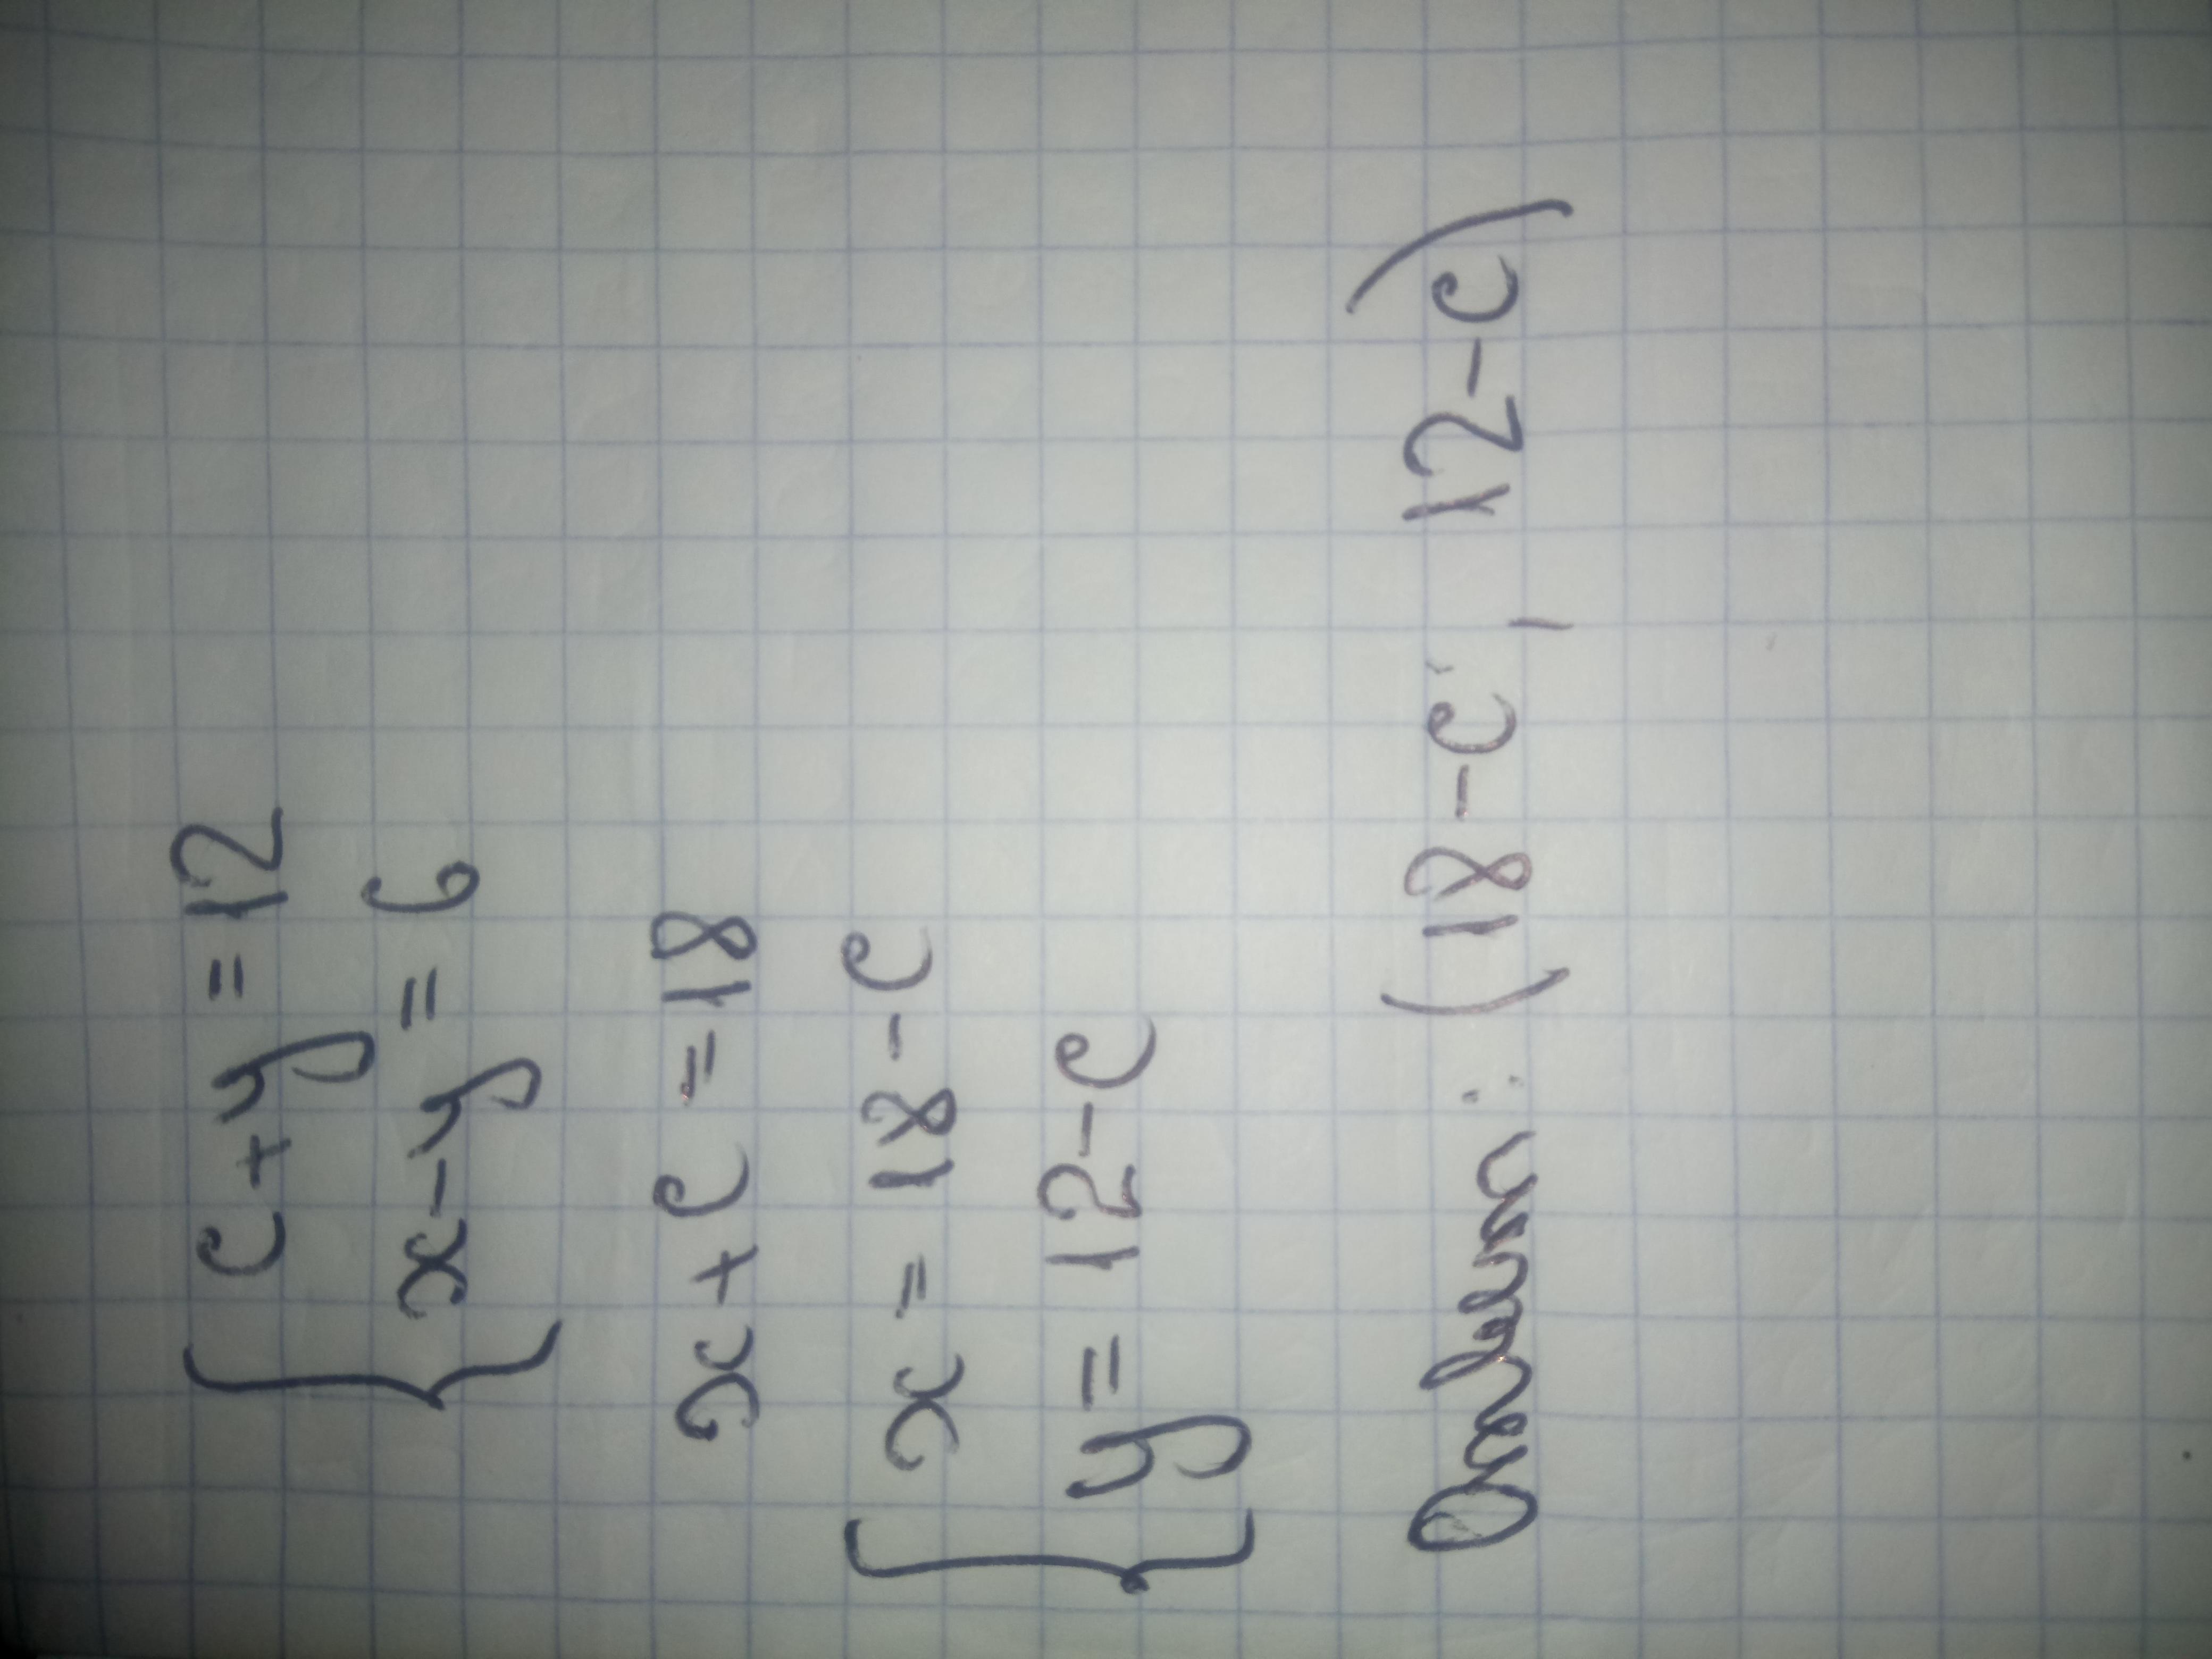 c + y = 12
x - y = 6
x + c = 18
x = 18 - c
y = 12 - c
Ответ: (18 - c, 12 - c)